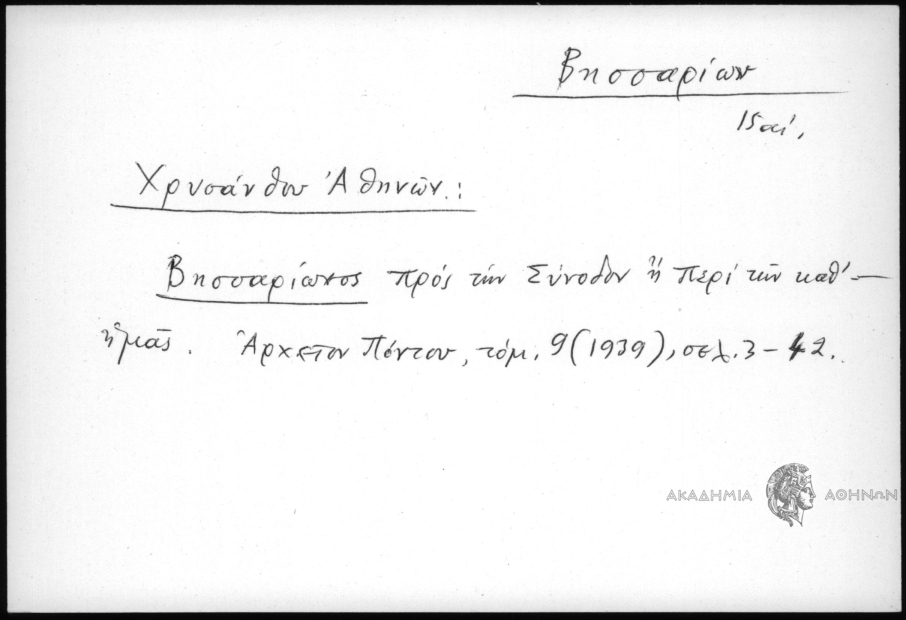 Βησσαρίων
15 αἰ.
Χρυσάνθου Ἀθηνῶν.:
Βησσαρίωνος πρός τήν Σύνοδον ἤ περί τῶν καθ'-
ἡμᾶς. Ἀρχεῖον Πόντου, τόμ. 9 (1939), σελ. 3-42.
ΑΚΑΔΗΜΙΑ ΑΘΗΝΩΝ